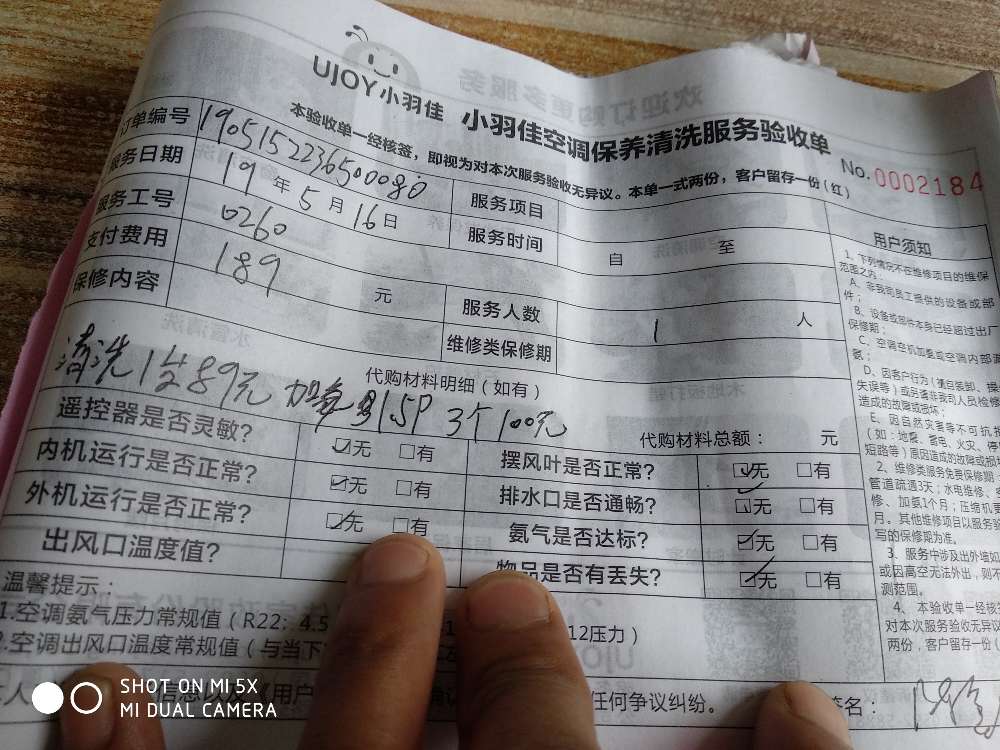 UJOY小羽佳
小羽佳空调保养清洗服务验收单
No.0002184
本验收单一经核签，即视为对本次服务验收无异议。本单一式两份，客户留存一份(红)
订单编号 1905152236500080 服务项目
服务日期 19 年 5 月 16 日 服务时间 自 至
服务工号 0260
支付费用 189 元 服务人数 1 人
保修内容 维修类保修期
代购材料明细（如有）
清洗1台89元 加氟 1.5P 3个 100元
代购材料总额： 元
遥控器是否灵敏? 无 有 摆风叶是否正常? 无 有
内机运行是否正常? 无 有 排水口是否通畅? 无 有
外机运行是否正常? 无 有 氨气是否达标? 无 有
出风口温度值? 物品是否有丢失? 无 有
温馨提示：
1.空调氨气压力常规值（R22: 4.5 12压力）
2.空调出风口温度常规值（与当下
信息以及《用户 任何争议纠纷。
签名：
用户须知
1、下列情况不在维修项目的维保
范围之内
A、非我司员工提供的设备或部
件；
B、设备或部件本身已经超过出厂
保修期；
C、空调空机加氨或空调内部漏
氨；
D、因客户行为（擅自装卸、操
失误等）或另请非我司人员检修
造成的故障或损坏；
E、因自然灾害等不可抗拒
（如：地震、雷电、火灾、停
短路等）原因造成的故障或损
2、维修类服务免费保修期：
管道疏通3天；水电维修、
修、加氨1个月；压缩机更
月。其他维修项目以服务验
写的保修期为准。
3、服务中涉及出外墙如
或因高空无法外出，则不
测范围。
4、本验收单一经核签
对本次服务验收无异议
两份，客户留存一份（
SHOT ON MI 5X
MI DUAL CAMERA